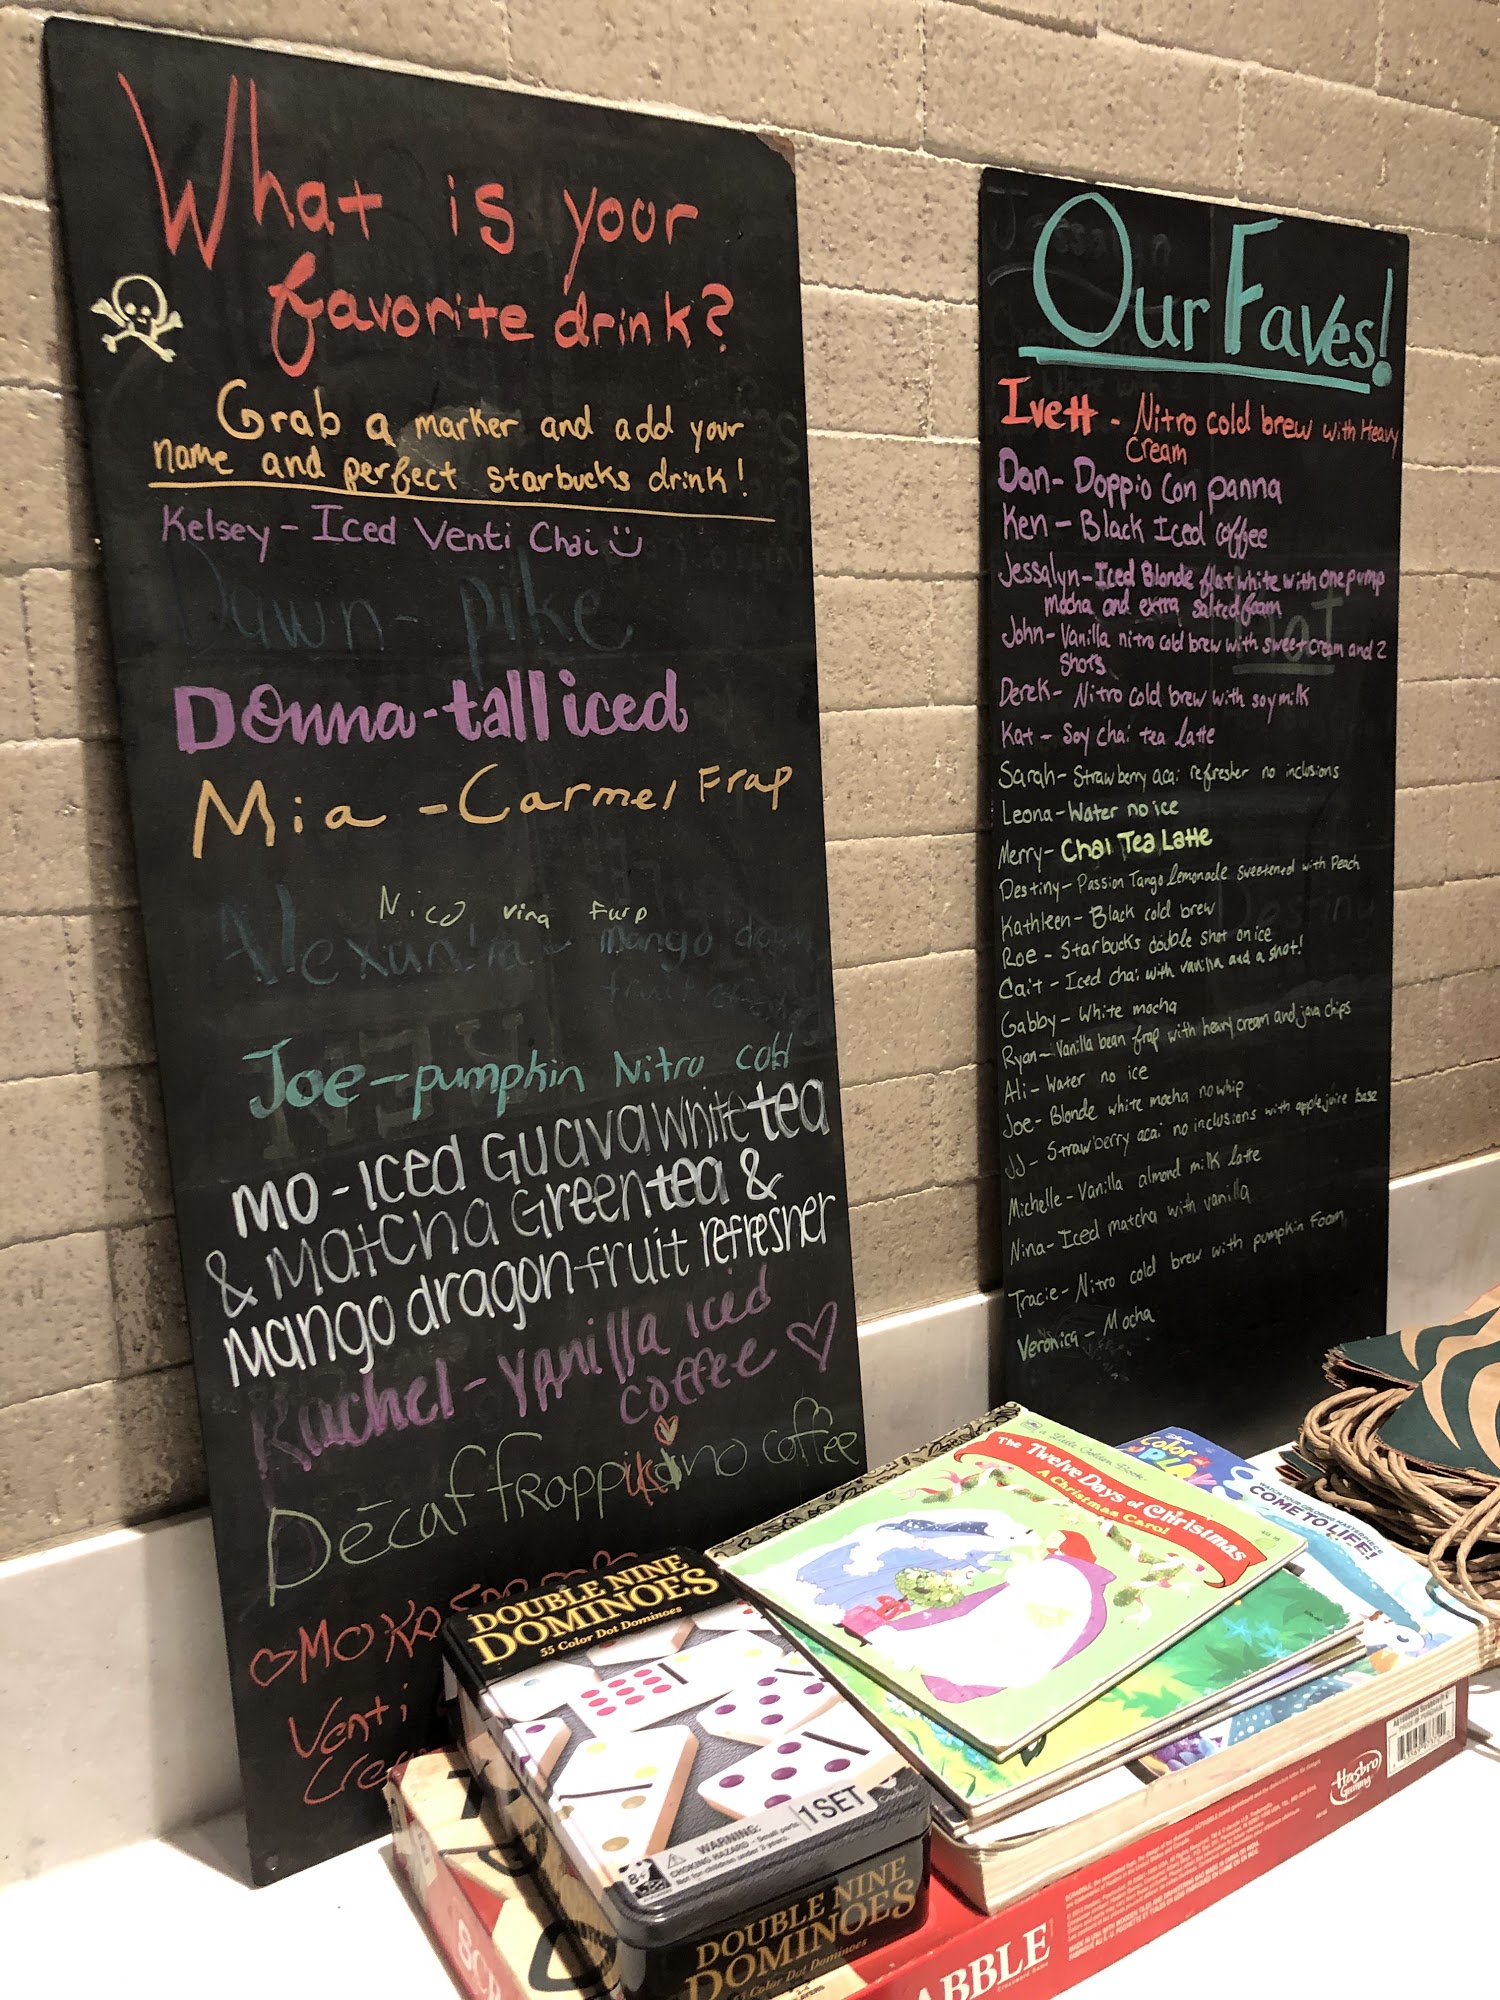 What is your
favorite drink?
Grab a marker and add your
name and perfect starbucks drink!
Kelsey - Iced Venti Chai
Dawn - pike
Donna - tall iced
Mia - Carmel Frap
Nico
Alexandria - mango dragon
fruit
Joe - pumpkin Nitro cold
MO - Iced Guava white tea
& Matcha Green tea &
Mango dragon fruit refresher
Rachel - Vanilla Iced
coffee
Decaf frappikino coffee
Venti
Our Faves!
Ivett - Nitro cold brew with Heavy
Cream
Dan - Doppio Con panna
Ken - Black Iced coffee
Jessalyn - Iced Blonde flat white with one pump
mocha and extra salted foam
John - Vanilla nitro cold brew with sweet cream and 2
shots
Derek - Nitro cold brew with soy milk
Kat - Soy chai tea latte
Sarah - Strawberry acai refresher no inclusions
Leona - Water no ice
Merry - Chai Tea Latte
Destiny - Passion Tango lemonade sweetened with Peach
Kathleen - Black cold brew
Roe - Starbucks double shot on ice
Cait - Iced chai with vanilla and a shot!
Gabby - White mocha
Ryan - Vanilla bean frap with heavy cream and java chips
Ali - Water no ice
Joe - Blonde white mocha no whip
JJ - Strawberry acai no inclusions with apple juice base
Michelle - Vanilla almond milk latte
Nina - Iced matcha with vanilla
Tracie - Nitro cold brew with pumpkin Foam
Veronica - Mocha
a Little Golden Book
The Twelve Days of Christmas
A Christmas Carol
Color
PLAY
COME TO LIFE!
DOUBLE NINE
DOMINOES
55 Color Dot Dominoes
1 SET
8+
WARNING:
CHOKING HAZARD - Small parts
Not for children under 3 years.
DOUBLE NINE
DOMINOES
55 Color Dot Dominoes
Hasbro
Gaming
ABBLE